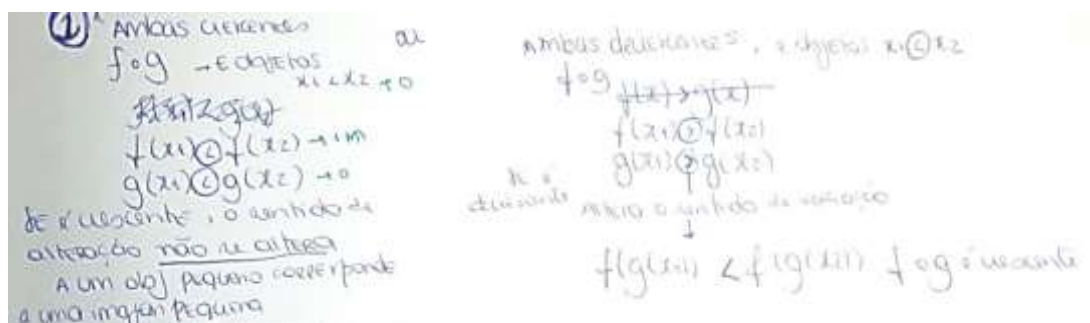 1 Ambas crescentes ou
f∘g → e objetos
x1 < x2 → o
f(x1) < f(x2) → im
g(x1) < g(x2) → o
se é crescente, o sentido de
alteração não se altera
A um obj pequeno corresponde
a uma imagem pequena
Ambas decrescentes, e objetos x1 < x2
f∘g f(x) > g(x)
f(x1) > f(x2)
g(x1) > g(x2)
se é
decrescente altera o sentido de variação
↓
f(g(x1)) < f(g(x2)) f∘g é crescente